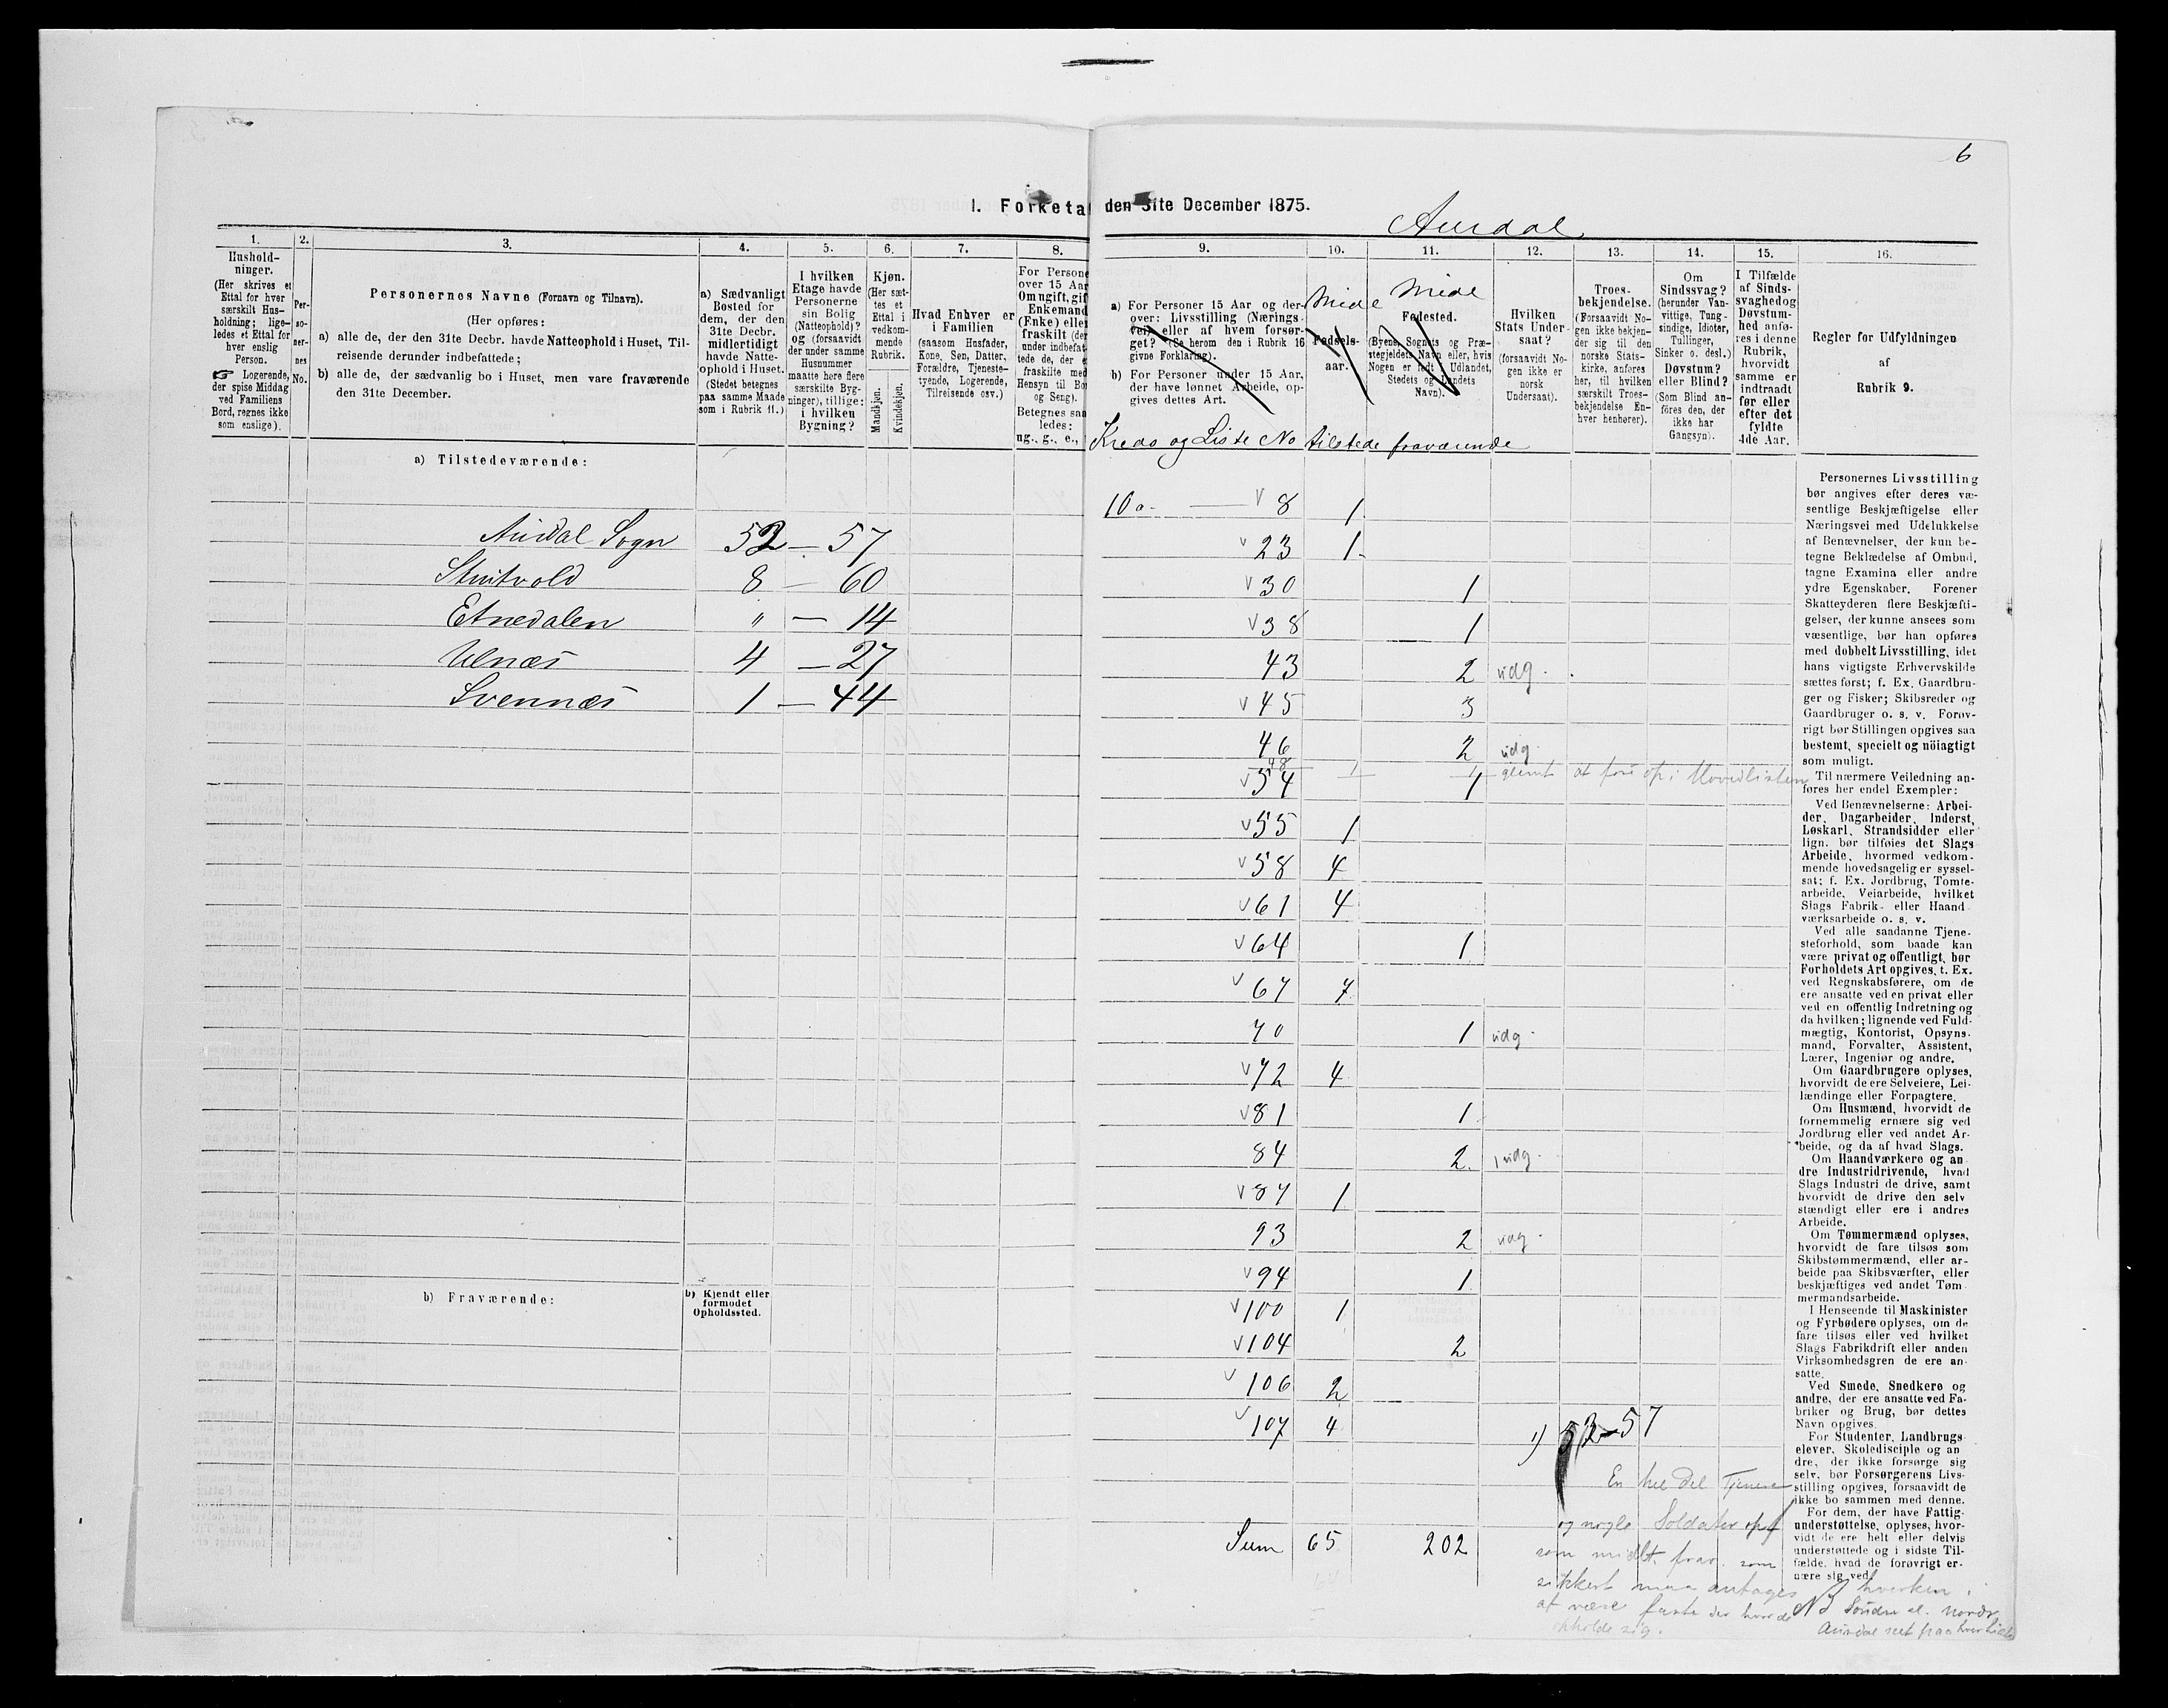 6
I. Folketal den 31te December 1875.
Aurdal
1.
Hushold-
ninger.
(Her skrives et
Ettal for hver
særskilt Hus-
holdning; lige-
ledes et Ettal for
hver enslig
Person.
☞ Logerende,
der spise Middag
ved Familiens
Bord, regnes ikke
som enslige).
2.
Per-
so-
ner-
nes
No.
3.
Personernes Navne (Fornavn og Tilnavn).
(Her opføres:
a) alle de, der den 31te Decbr. havde Natteophold i Huset, Til-
reisende derunder indbefattede;
b) alle de, der sædvanlig bo i Huset, men vare fraværende
den 31te December.
4.
a) Sædvanligt
Bosted for
dem, der den
31te Decbr.
midlertidigt
havde Natte-
ophold i Huset.
(Stedet betegnes
paa samme Maade
som i Rubrik 11.)
5.
I hvilken
Etage havde
Personerne
sin Bolig
(Natteophold)?
og (forsaavidt
der under samme
Husnummer
maatte høre flere
særskilte Byg-
ninger), tillige:
i hvilken
Bygning?
6.
Kjøn.
(Her sæt-
tes et
Ettal i
vedkom-
mende
Rubrik.
Mandkjøn.
Kvindekjøn.
7.
Hvad Enhver er
i Familien
(saasom Husfader,
Kone, Søn, Datter,
Forældre, Tjeneste-
tyende, Logerende,
Tilreisende osv.)
8.
For Persone
over 15 Aar
Om ugift, gif
Enkemand
(Enke) elle
fraskilt (der
under indbefat-
tede de, der e
fraskilte med
Hensyn til Bo
og Seng).
Betegnes saa
ledes:
ug., g., e.,
9.
a) For Personer 15 Aar og der-
over: Livsstilling (Nærings-
vei) eller af hvem forsør-
get? (Se herom den i Rubrik 16
givne Forklaring).
b) For Personer under 15 Aar,
der have lønnet Arbeide, op-
gives dettes Art.
10.
Midl
Fødsels-
aar.
11.
Midl
Fødested.
(Byens, Sognets og Præ-
stegjeldets Navn eller, hvis
Nogen er født i Udlandet,
Stedets og Landets
Navn).
12.
Hvilken
Stats Under-
saat?
(forsaavidt No-
gen ikke er
norsk
Undersaat).
13.
Troes-
bekjendelse.
(Forsaavidt No-
gen ikke bekjen-
der sig til den
norske Stats-
kirke, anføres
her, til hvilken
særskilt Troes-
bekjendelse En-
hver henhører).
14.
Om
Sindssvag?
(herunder Van-
vittige, Tung-
sindige, Idioter,
Tullinger,
Sinker o. desl.)
Døvstum?
eller Blind?
(Som Blind an-
føres den, der
ikke har
Gangsyn).
15.
I Tilfælde
af Sinds-
svaghed og
Døvstum-
hed anfø-
res i denne
Rubrik,
hvorvidt
samme er
indtraadt
før eller
efter det
fyldte
4de Aar.
16.
Regler for Udfyldningen
af
Rubrik 9.
Kreds og Liste No tilstede fraværende
a) Tilstedeværende:
Aurdal Sogn 52 — 57
Strutvold 8 — 60
Etnedalen " — 14
Ulnæs 4 — 27
Svennæs 1 — 44
b) Fraværende:
b) Kjendt eller
formodet
Opholdssted.
10a. — v 8 1
v 23 1
v 30 1
v 38 1
43 2 udg.
v 45 3
46 2 udg.
48 1 1 glemt at føre op i Hovedlisten
v 54 1
v 55 1
v 58 4
v 61 4
v 64 1
v 67 7
70 1 udg.
v 72 4
v 81 1
84 2 1 udg.
v 87 1
93 2 udg.
v 94 1
v 100 1
v 104 2
v 106 2
v 107 4
1) 52-57
En hel Del Tjenere
og nogle Soldater opf
som midlt. frav. som
sikkert maa antages
at være faste der hvor de
opholde sig.
Sum 65 202
Personernes Livsstilling
bør angives efter deres væ-
sentlige Beskjæftigelse eller
Næringsvei med Udelukkelse
af Benævnelser, der kun be-
tegne Beklædelse af Ombud,
tagne Examina eller andre
ydre Egenskaber. Forener
Skatteyderen flere Beskjæfti-
gelser, der kunne ansees som
væsentlige, bør han opføres
med dobbelt Livsstilling, idet
hans vigtigste Erhvervskilde
sættes først; f. Ex. Gaardbru-
ger og Fisker; Skibsreder og
Gaardbruger o. s. v. Forøv-
rigt bør Stillingen opgives saa
bestemt, specielt og nöiagtigt
som muligt.
Til nærmere Veiledning an-
føres her endel Exempler:
Ved Benævnelserne: Arbei-
der, Dagarbeider, Inderst,
Løskarl, Strandsidder eller
lign. bør tilføies det Slags
Arbeide, hvormed vedkom-
mende hovedsagelig er syssel-
sat; f. Ex. Jordbrug, Tomte-
arbeide, Veiarbeide, hvilket
Slags Fabrik- eller Haand-
værksarbeide o. s. v.
Ved alle saadanne Tjene-
steforhold, som baade kan
være privat og offentligt, bør
Forholdets Art opgives, t. Ex.
ved Regnskabsførere, om de
ere ansatte ved en privat eller
ved en offentlig Indretning og
da hvilken; lignende ved Fuld-
mægtig, Kontorist, Opsyns-
mand, Forvalter, Assistent,
Lærer, Ingeniør og andre.
Om Gaardbrugere oplyses,
hvorvidt de ere Selveiere, Lei-
lændinge eller Forpagtere.
Om Husmænd, hvorvidt de
fornemmelig ernære sig ved
Jordbrug eller ved andet Ar-
beide, og da af hvad Slags.
Om Haandværkere og an
dre Industridrivende, hvad
Slags Industri de drive, samt
hvorvidt de drive den selv
stændigt eller ere i andres
Arbeide.
Om Tømmermænd oplyses,
hvorvidt de fare tilsøs som
Skibstømmermænd, eller ar-
beide paa Skibsværfter, eller
beskjæftiges ved andet Tøm-
mermandsarbeide.
I Henseende til Maskinister
og Fyrbødere oplyses, om de
fare tilsøs eller ved hvilket
Slags Fabrikdrift eller anden
Virksomhedsgren de ere an-
satte.
Ved Smede, Snedkere og
andre, der ere ansatte ved Fa-
briker og Brug, bør dettes
Navn opgives.
For Studenter, Landbrugs-
elever, Skoledisciple og an
dre, der ikke forsørge sig
selv, bør Forsørgerens Livs-
stilling opgives, forsaavidt de
ikke bo sammen med denne.
For dem, der have Fattig-
understøttelse, oplyses, hvor-
vidt de ere helt eller delvis
understøttede og i sidste Til-
fælde, hvad de forøvrigt er-
nære sig ved.
NB hverken i
Søndre el. Nordr.
Aurdal